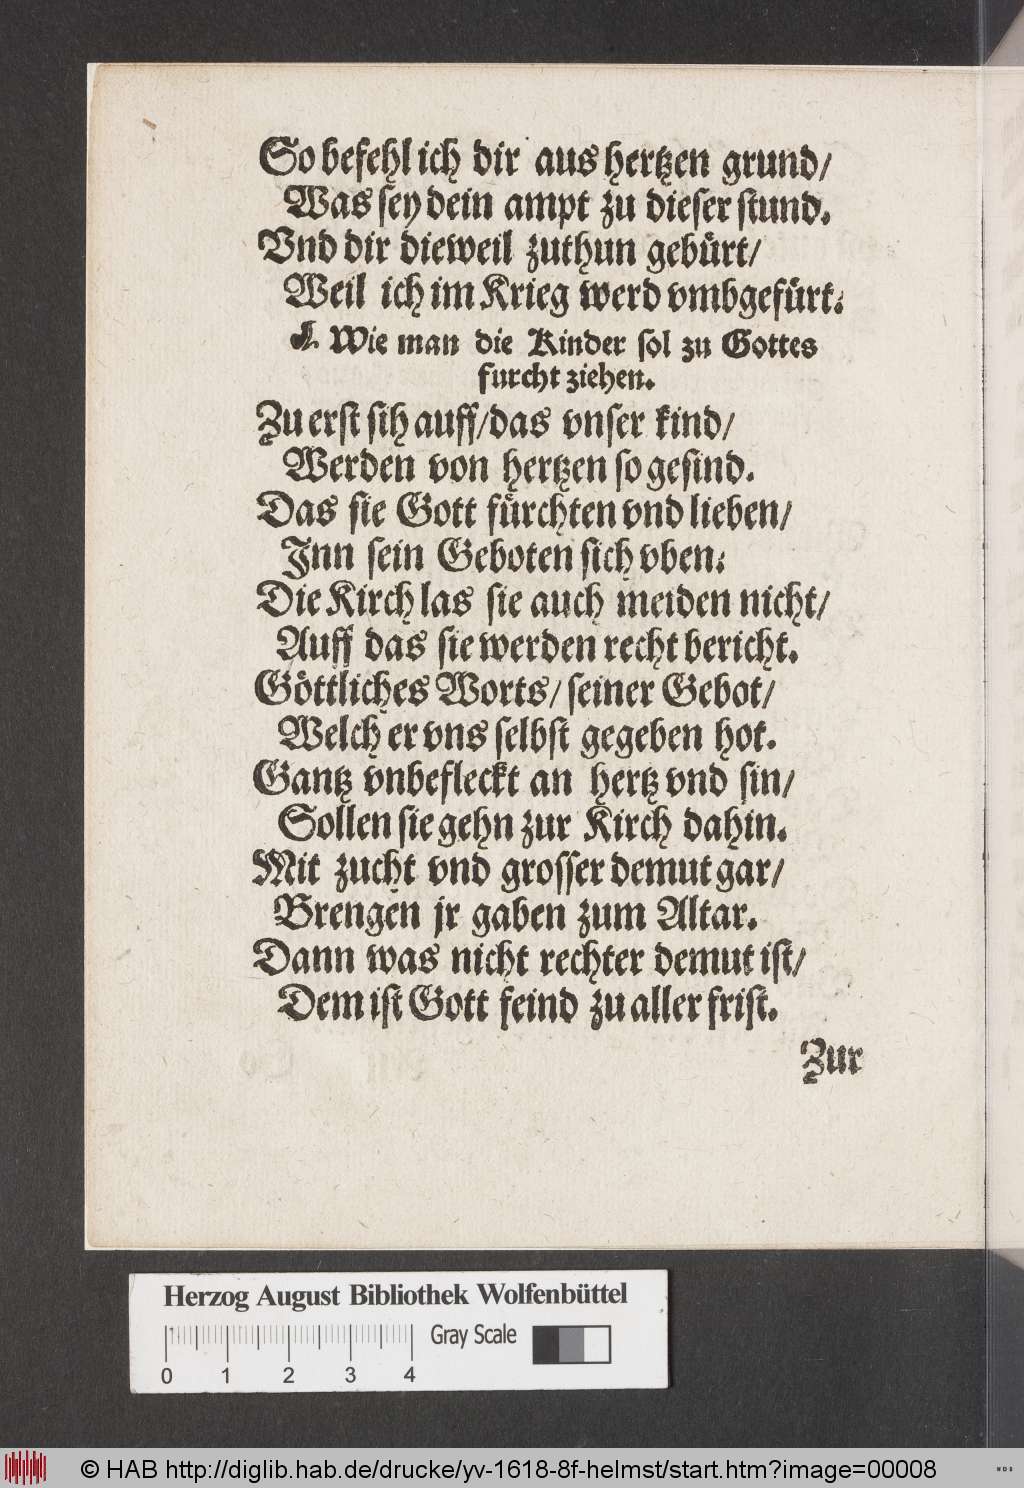 So befehl ich dir aus hertzen grund/
Was sey dein ampt zu dieser stund.
Vnd dir dieweil zuthun gebürt/
Weil ich im Krieg werd vmbgefürt.
☙ Wie man die Kinder sol zu Gottes
furcht ziehen.
Zu erst sih auff/das vnser kind/
Werden von hertzen so gesind.
Das sie Gott fürchten vnd lieben/
Inn sein Geboten sich vben.
Die Kirch las sie auch meiden nicht/
Auff das sie werden recht bericht.
Göttliches Worts/ seiner Gebot/
Welch er vns selbst gegeben hot.
Gantz vnbefleckt an hertz vnd sin/
Sollen sie gehn zur Kirch dahin.
Mit zucht vnd grosser demut gar/
Brengen jr gaben zum Altar.
Dann was nicht rechter demut ist/
Dem ist Gott feind zu aller frist.
Zur
Herzog August Bibliothek Wolfenbüttel
Gray Scale
0 1 2 3 4
© HAB http://diglib.hab.de/drucke/yv-1618-8f-helmst/start.htm?image=00008